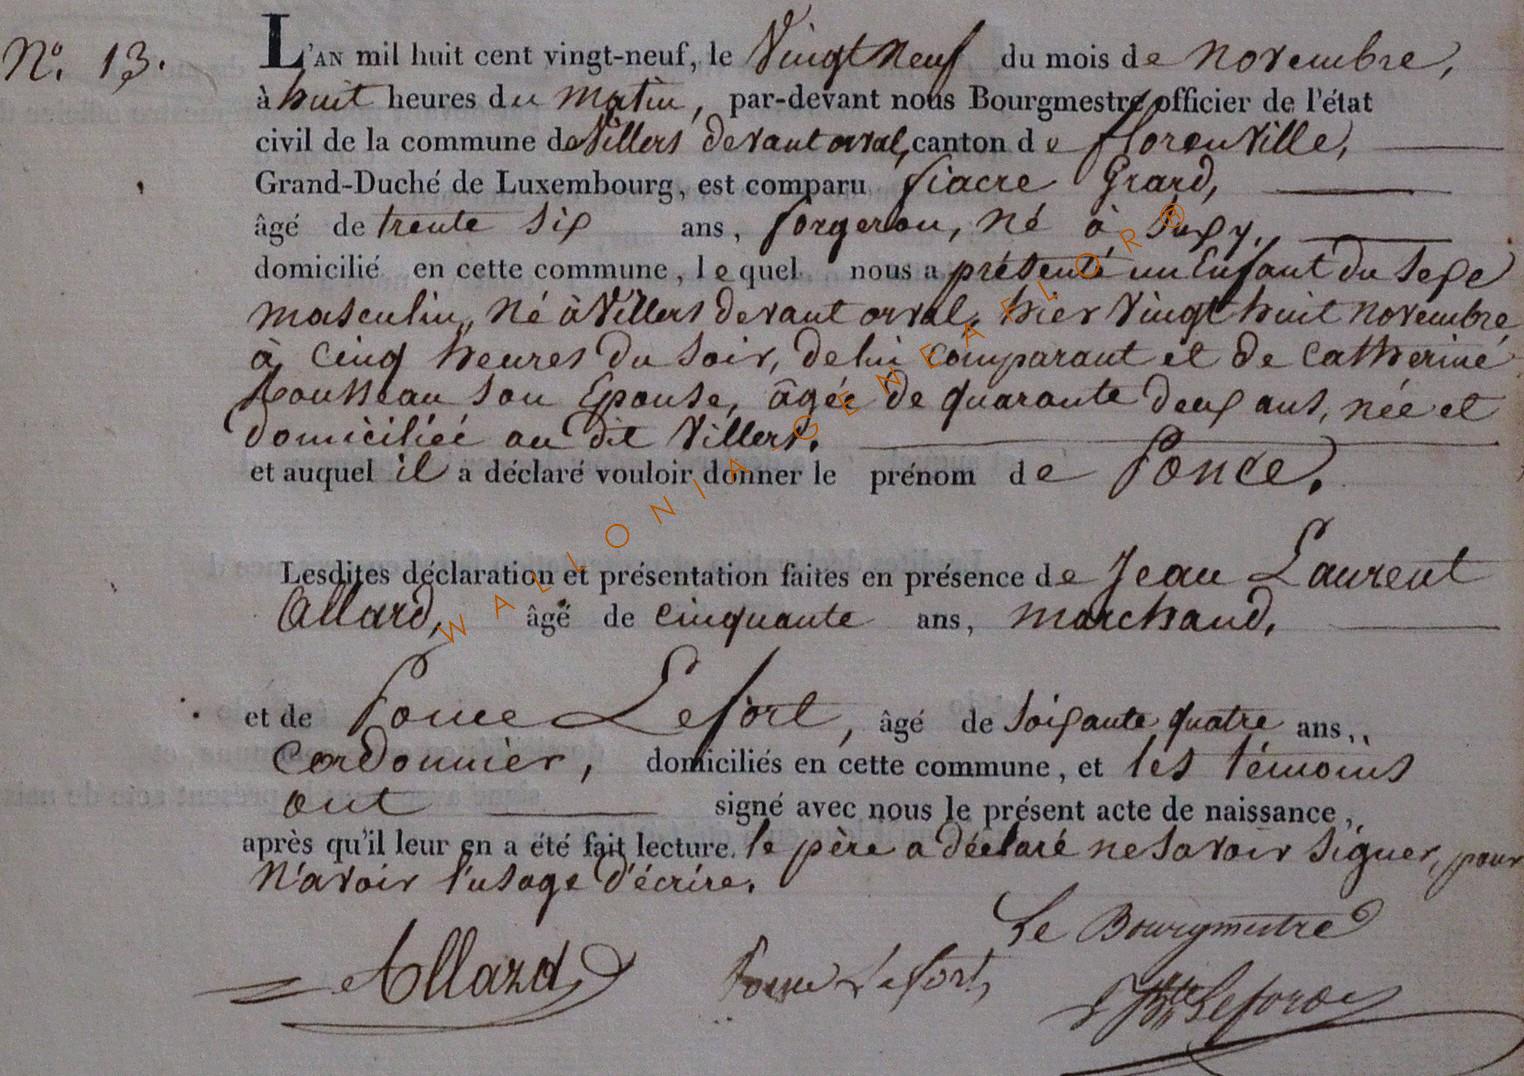 N.° 13.
L'AN mil huit cent vingt-neuf, le Vingt neuf du mois de novembre,
à huit heures du matin, par-devant nous Bourgmestre officier de l'état
civil de la commune de Villers devant orval, canton de florenville,
Grand-Duché de Luxembourg, est comparu fiacre Grard,
âgé de trente six ans, forgeron, né à Suxy,
domicilié en cette commune, lequel nous a présenté un Enfant du Sexe
masculin, né à Villers devant orval, hier vingt huit novembre
à cinq heures du soir, de lui comparant et de catherine
Rousseau son Epouse, âgée de quarante deux ans, née et
domiciliée au dit Villers.
et auquel il a déclaré vouloir donner le prénom de Ponce.
Lesdites déclaration et présentation faites en présence de Jean Laurent
Allard, âgé de cinquante ans, marchand,
et de Ponce Lefort, âgé de soixante quatre ans,
Cordonnier, domiciliés en cette commune, et les témoins
ont signé avec nous le présent acte de naissance,
après qu'il leur en a été fait lecture. le père a déclaré ne savoir signer, pour
N'avoir l'usage d'écrire.
Le Bourgmestre
Allard Ponce Lefort,
WALLONIA GENEAFLOR®